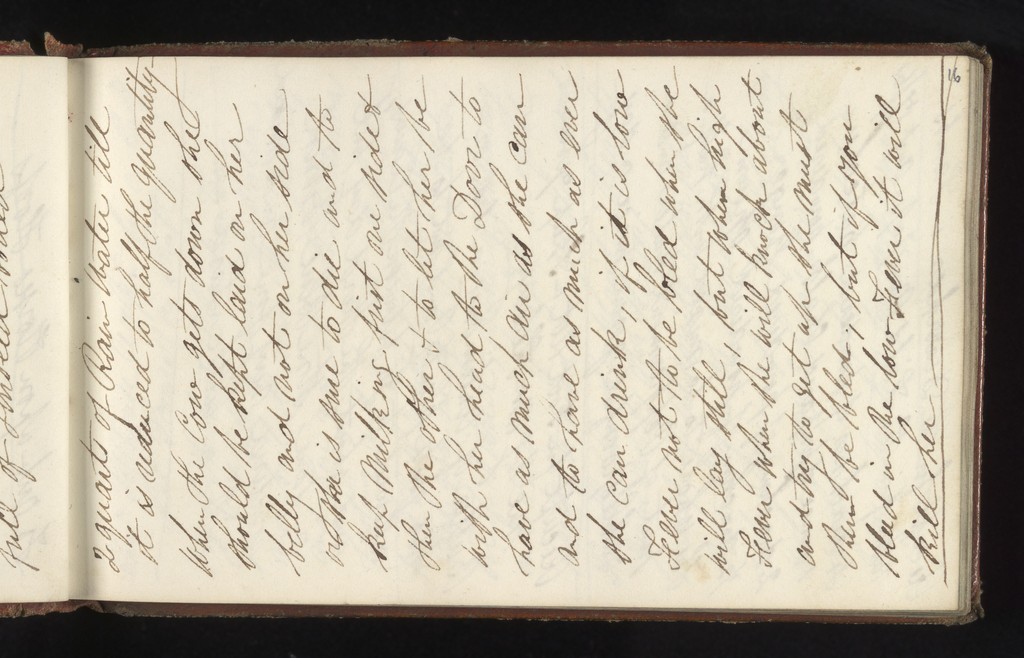 16
2 quarts of Rain water till
it is reduced to half the quantity
When the Cow gets down she
should be kept laid on her
belly and not on her side
or she is sure to die and to
kept Milking first one side &
then the other & to let her be
with her head to the Door to
have as much air as she can
and to have as much as ever
she can drink, if it is low
Fever not to be bled when she
will lay still, but when high
Fever when she will knock about
and try to get up she must
then be bled, but if you
bleed in the low Fever it will
kill her